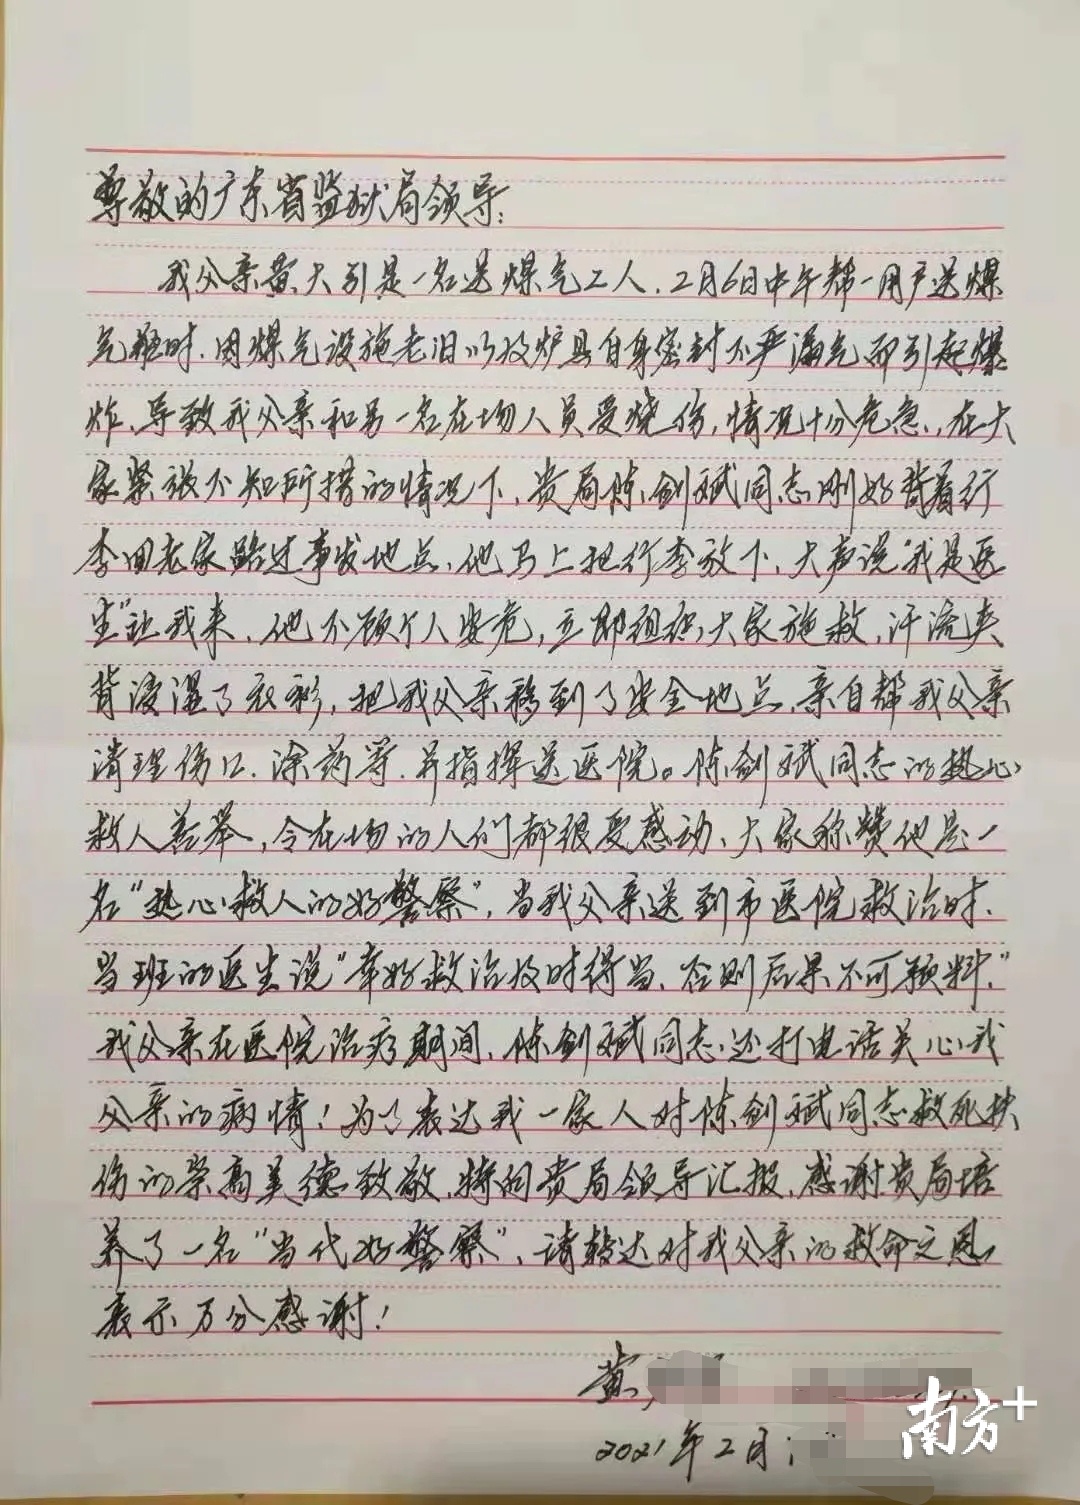 尊敬的广东省监狱局领导：
我父亲黄大引是一名送煤气工人，2月6日中午帮一用户送煤
气瓶时，因煤气设施老旧以及炉具自身密封不严漏气而引起爆
炸，导致我父亲和另一名在场人员受烧伤，情况十分危急，在大
家紧张不知所措的情况下，贵局陈剑斌同志刚好背着行
李回老家路过事发地点，他马上把行李放下，大声说“我是医
生”让我来，他不顾个人安危，立即组织大家施救，汗流夹
背浸湿了衣衫，把我父亲移到了安全地点，亲自帮我父亲
清理伤口，涂药等，并指挥送医院。陈剑斌同志的热心
救人善举，令在场的人们都很受感动、大家称赞他是一
名“热心救人的好警察”，当我父亲送到市医院救治时，
当班的医生说“幸好救治及时得当，否则后果不可预料”
我父亲在医院治疗期间，陈剑斌同志还打电话关心我
父亲的病情！为了表达我一家人对陈剑斌同志救死扶
伤的崇高美德致敬，特向贵局领导汇报，感谢贵局培
养了一名“当代好警察”，请转达对我父亲的救命之恩，
表示万分感谢！
黄
2021年2月
南方+